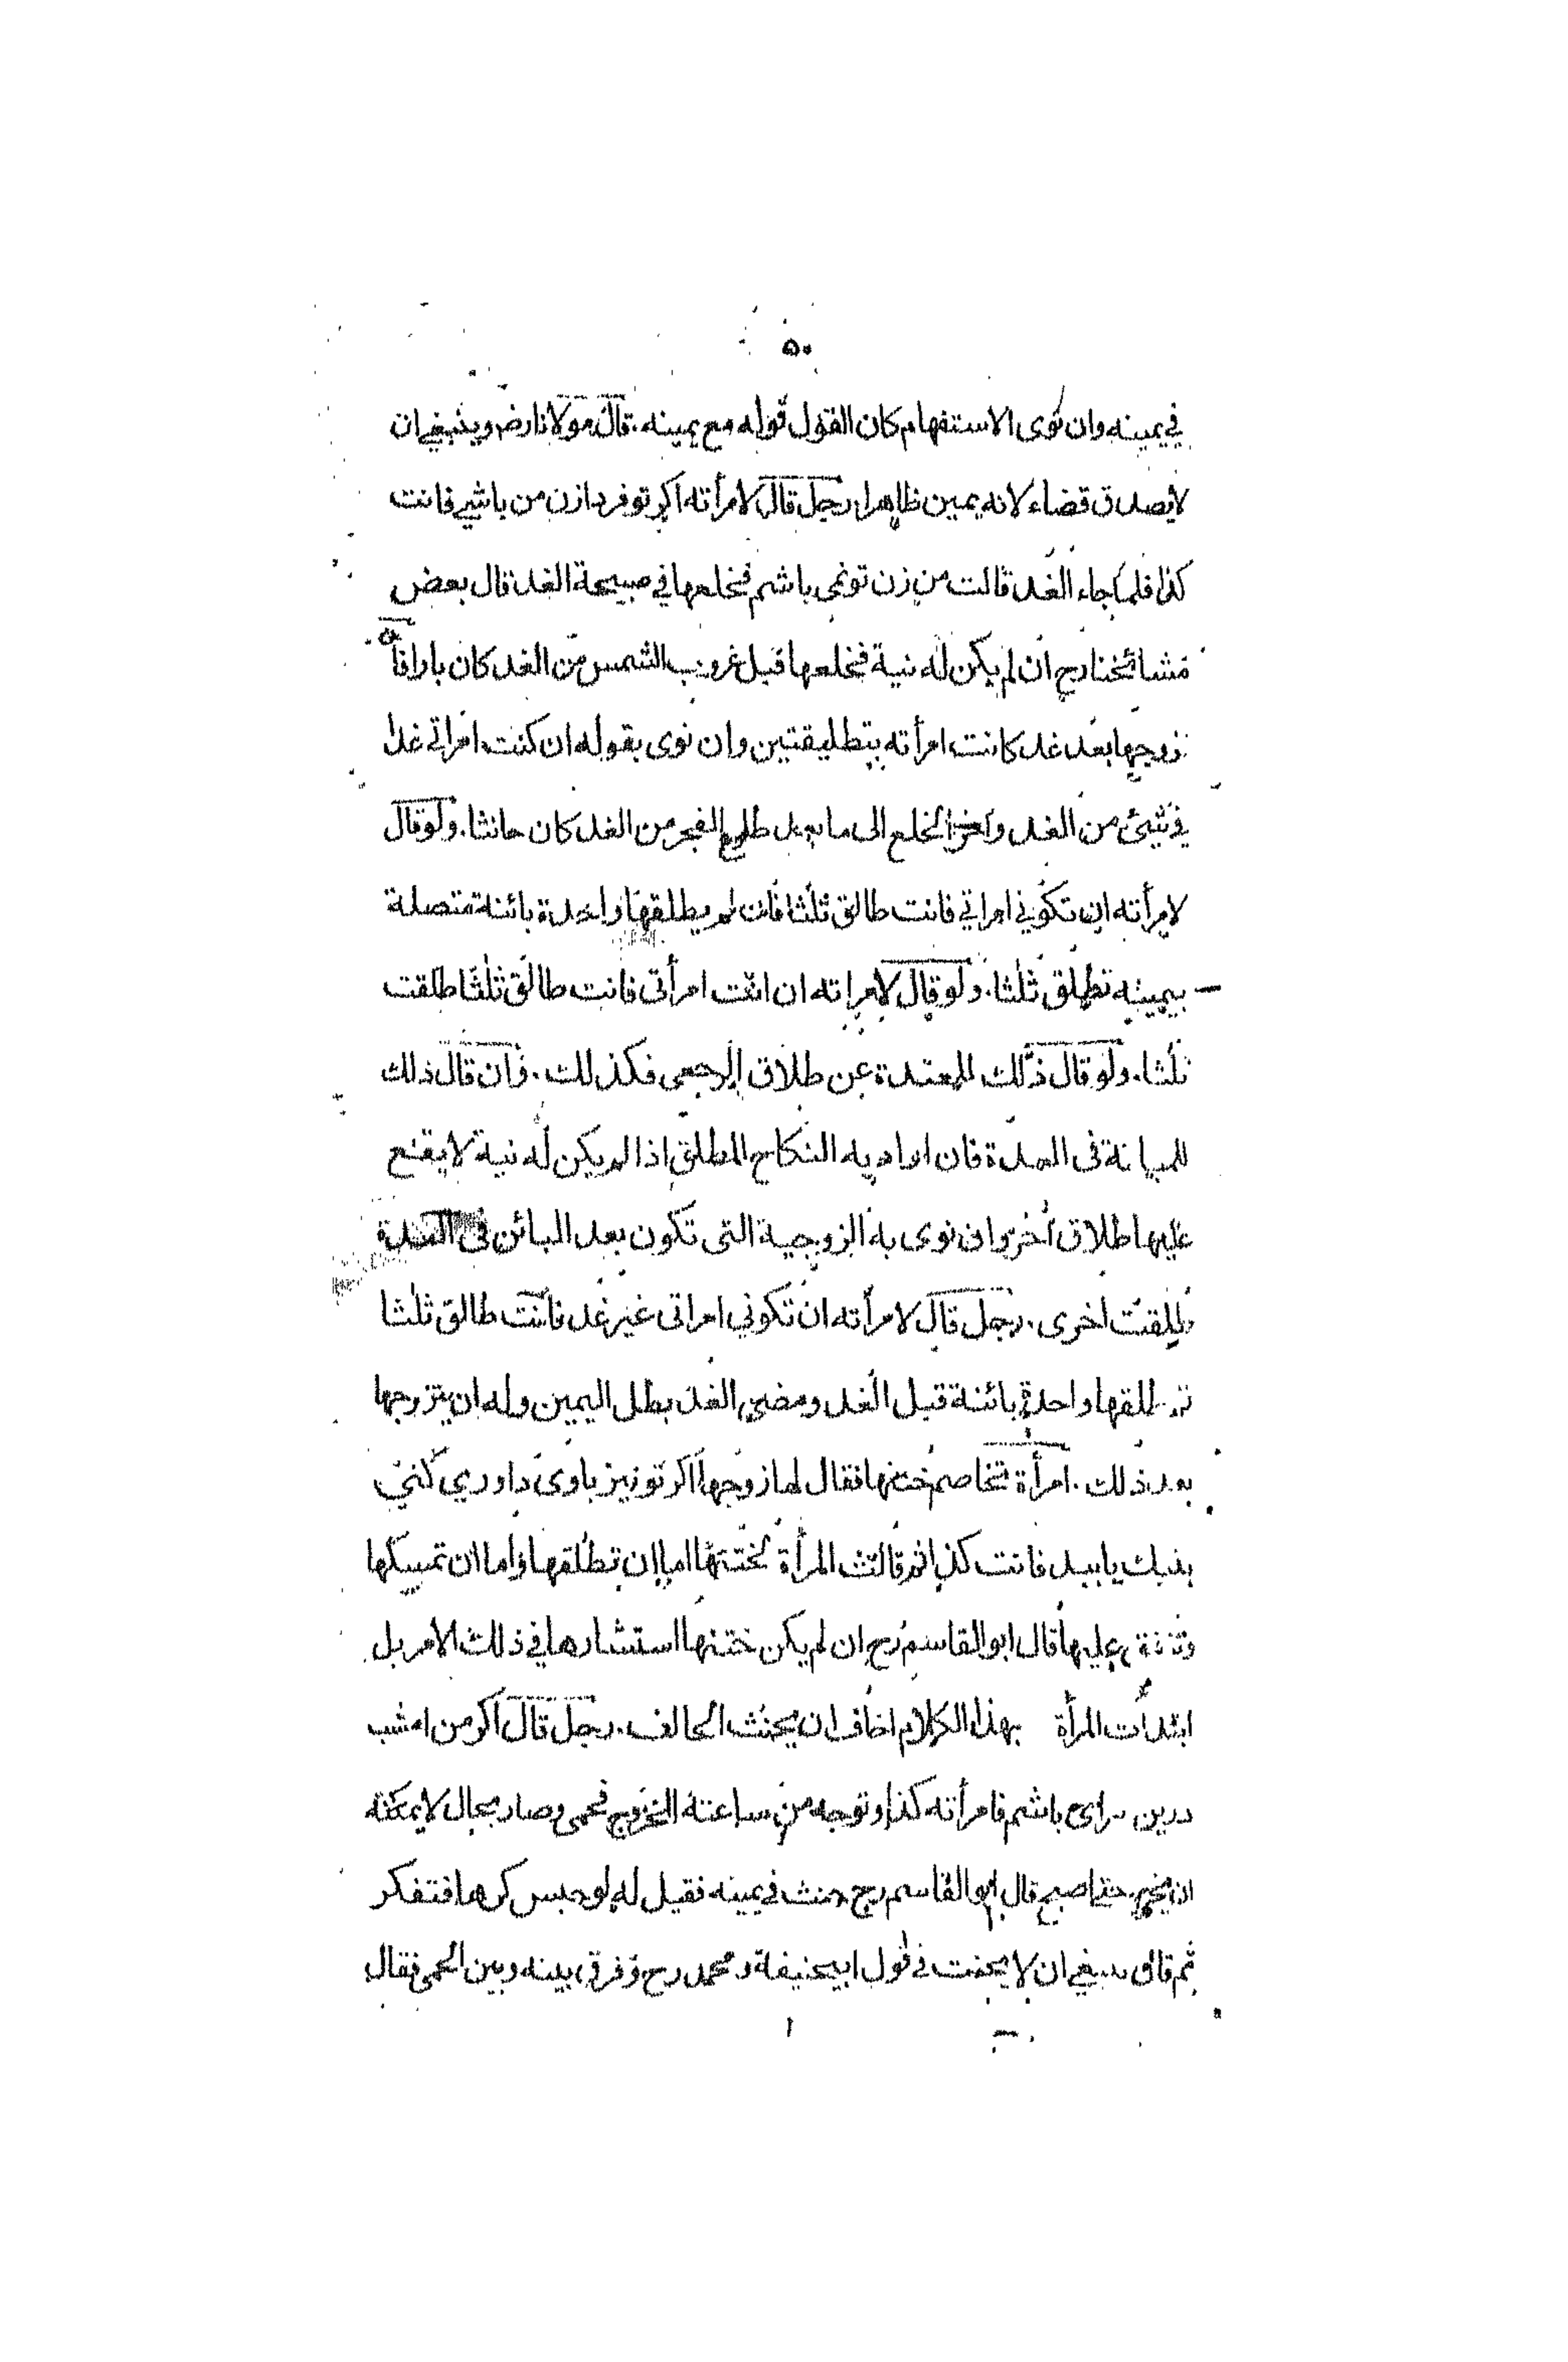 ٥٠
في يمينه وان نوى الاستفهام كان القول قوله مع يمينه. قال مولانا رض وينبغي ان
لا يصدق قضاء لانه يمين ظاهرا رجل قال لامرأته اكر تو فردا زن من باشي فانت
كذا فلما جاء الغد قالت من زن تو نمى باشم فخلعها في صبيحة الغد قال بعض
مشائخنا رح ان لم يكن له نية فخلعها قبل غروب الشمس من الغد كان بارا فا ٥
تزوجها بعد غد كانت امرأته بتطليقتين وان نوى بقوله ان كنت امراتي غدا
في شيئ من الغد واخر الخلع الى ما بعد طلوع الفجر من الغد كان حانثا. ولو قال
لامرأته ان تكوني امراتي فانت طالق ثلثا فان لم يطلقها واحدة بائنة متصلة
بيمينه تطلق ثلثا. ولو قال لامراته ان انت امرأتى فانت طالق ثلثا طلقت
ثلثا. ولو قال ذلك للمعتدة عن طلاق الرجعى فكذلك. وان قال ذلك
للمبانة فى العدة فان اراد به النكاح المطلق اذا لم يكن له نية لا يقع
عليها طلاق اخر وان نوى به الزوجية التى تكون بعد البائن فى العدة
طلقت اخرى. رجل قال لامرأته ان تكوني امراتى غير غد فانت طالق ثلثا
طلقها واحدة بائنة قبل الغد ومضى الغد بطل اليمين وله ان يتزوجها
بعد ذلك. امرأة تخاصم ختنها فقال لها زوجها اكر تو نيز باوى داوري كني
بنيك يا ببد فانت كذا ثم قالت المرأة لختنها اما ان تطلقها واما ان تمسكها
عليها قال ابو القاسم رح ان لم يكن ختنها استشارها في ذلك الامر بل
ابتدأت المرأة بهذا الكلام اخاف ان يحنث الحالف. رجل قال اكر من امشب
درين سراى باشم فامرأته كذا وتوجه من ساعته الخروج فحمى وصار بحال لا يمكنه
حتى اصبح قال ابو القاسم رح حنث في يمينه فقيل له لو حبس كرها فتفكر
ثم قال ينبغي ان لا يحنث في قول ابيحنيفة ومحمد رح وفرق بينه وبين الحمى فقال